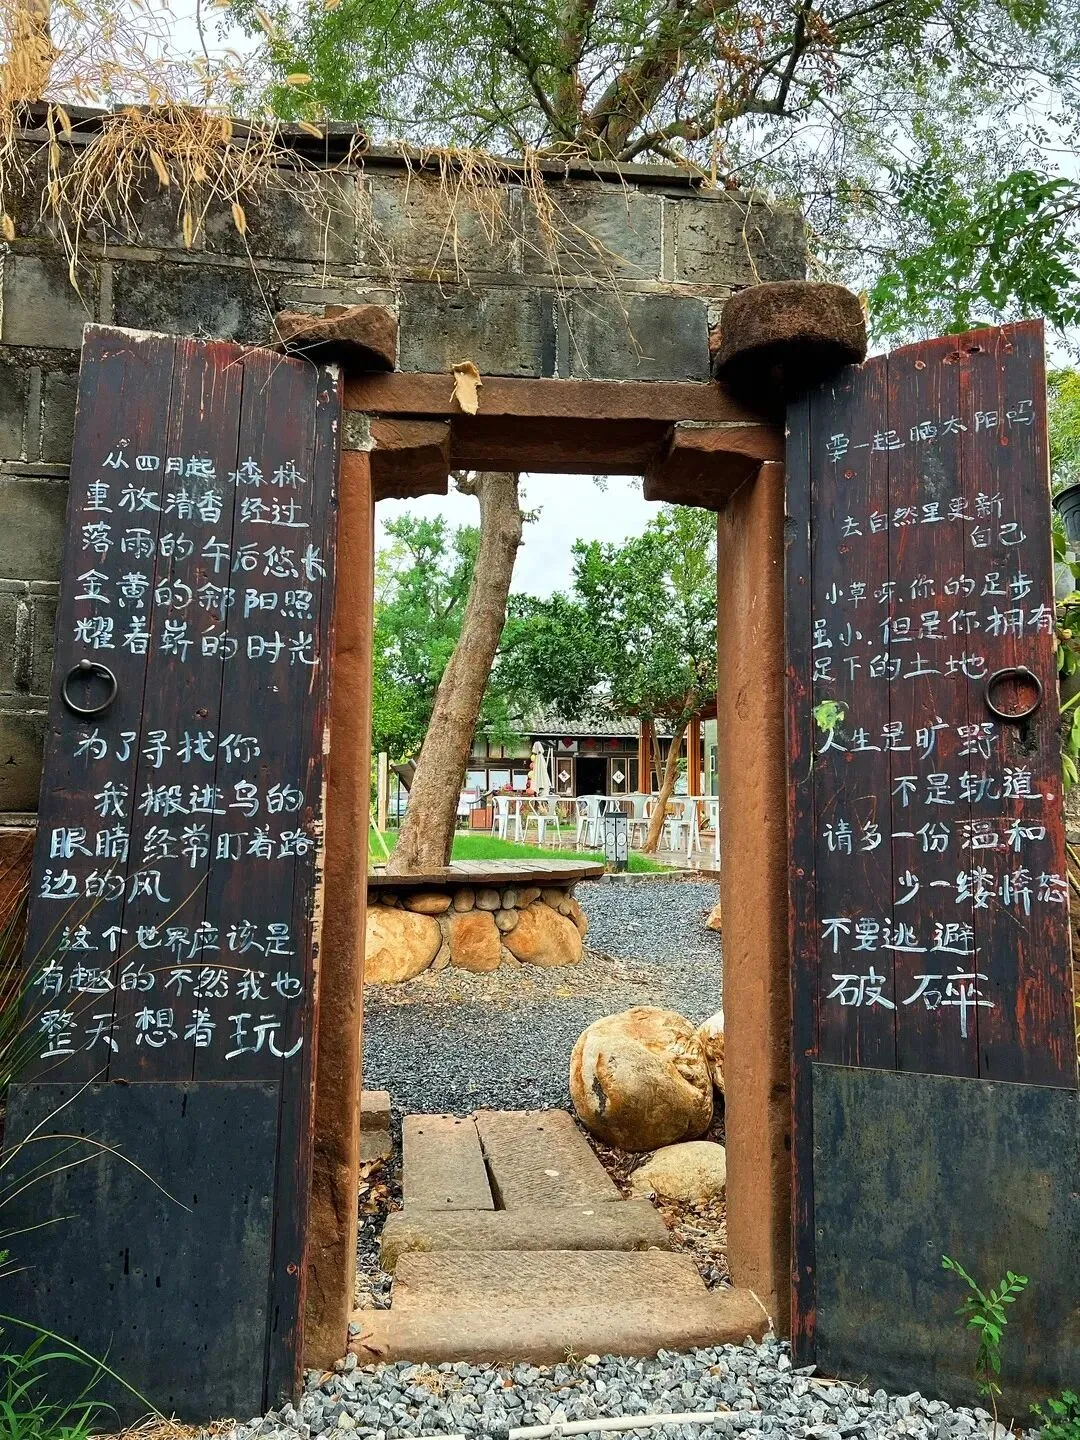 从四月起 森林
重放清香 经过
落雨的午后悠长
金黄的斜阳照
耀着崭的时光
为了寻找你
我搬进鸟的
眼睛 经常盯着路
边的风
这个世界应该是
有趣的 不然我也
整天想着玩
要一起晒太阳吗
去自然里更新
自己
小草呀,你的足步
虽小,但是你拥有
足下的土地
人生是旷野
不是轨道。
请多一份温和
少一缕愤怒
不要逃避
破碎